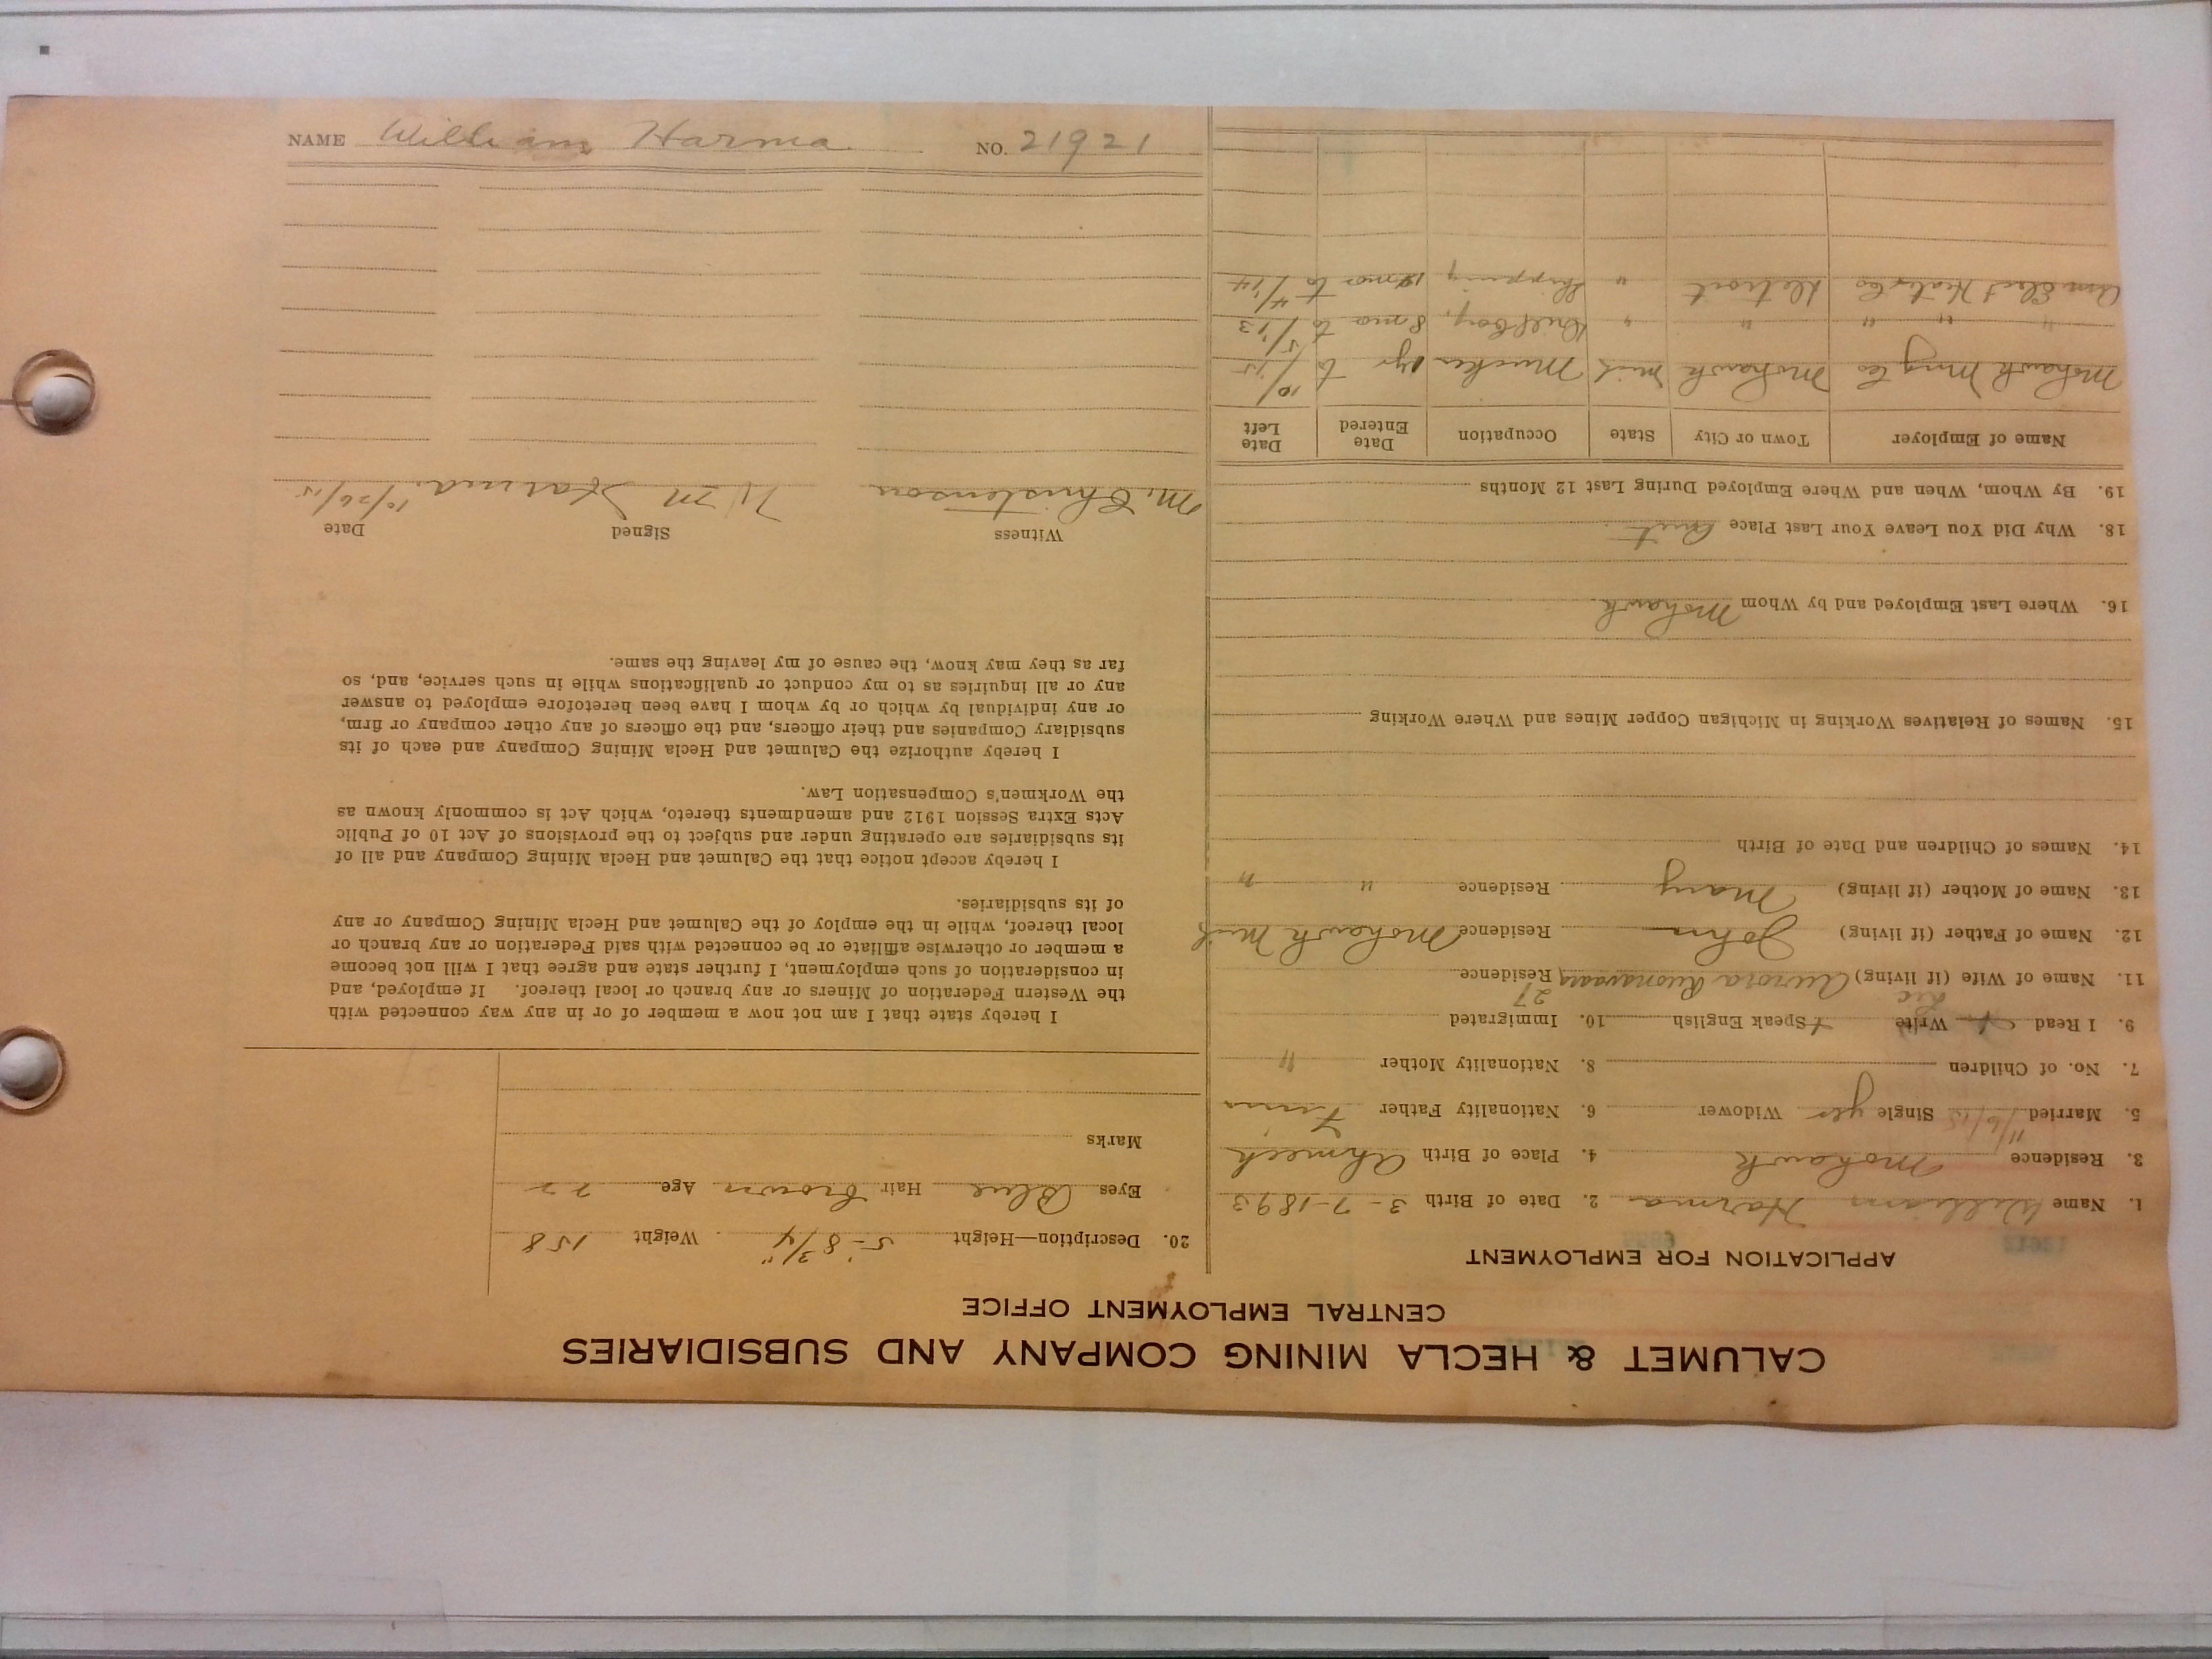 CALUMET & HECLA MINING COMPANY AND SUBSIDIARIES
CENTRAL EMPLOYMENT OFFICE
APPLICATION FOR EMPLOYMENT
1. Name William Harma 2. Date of Birth 3-7-1893
3. Residence Mohawk 4. Place of Birth Ahmeek
5. Married 11/6/15 Single yes Widower 6. Nationality Father Finn
7. No. of Children 8. Nationality Mother "
9. I Read Write Speak English 10. Immigrated
Dec 27
11. Name of Wife (if living) Aurora Residence
12. Name of Father (if living) John Residence Mohawk Mich
13. Name of Mother (if living) Mary Residence " "
14. Names of Children and Date of Birth
15. Names of Relatives Working in Michigan Copper Mines and Where Working
16. Where Last Employed and by Whom Mohawk
18. Why Did You Leave Your Last Place Quit
19. By Whom, When and Where Employed During Last 12 Months
Name of Employer Town or City State Occupation Date Entered Date Left
Mohawk Mng Co Mohawk Mich Mucker 1 yr to 10/15
" " " " " Drill boy, 8 mo to 5/13
Am Elect Heater Co Detroit " Shipping mo to 4/14
20. Description—Height 5'-8 3/4" Weight 158
Eyes Blue Hair brown Age 22
Marks
I hereby state that I am not now a member of or in any way connected with
the Western Federation of Miners or any branch or local thereof. If employed, and
in consideration of such employment, I further state and agree that I will not become
a member or otherwise affiliate or be connected with said Federation or any branch or
local thereof, while in the employ of the Calumet and Hecla Mining Company or any
of its subsidiaries.
I hereby accept notice that the Calumet and Hecla Mining Company and all of
its subsidiaries are operating under and subject to the provisions of Act 10 of Public
Acts Extra Session 1912 and amendments thereto, which Act is commonly known as
the Workmen's Compensation Law.
I hereby authorize the Calumet and Hecla Mining Company and each of its
subsidiary Companies and their officers, and the officers of any other company or firm,
or any individual by which or by whom I have been heretofore employed to answer
any or all inquiries as to my conduct or qualifications while in such service, and, so
far as they may know, the cause of my leaving the same.
Witness Signed Date
M. Christenson Wm Harma. 10/26/15
NAME William Harma NO. 21921